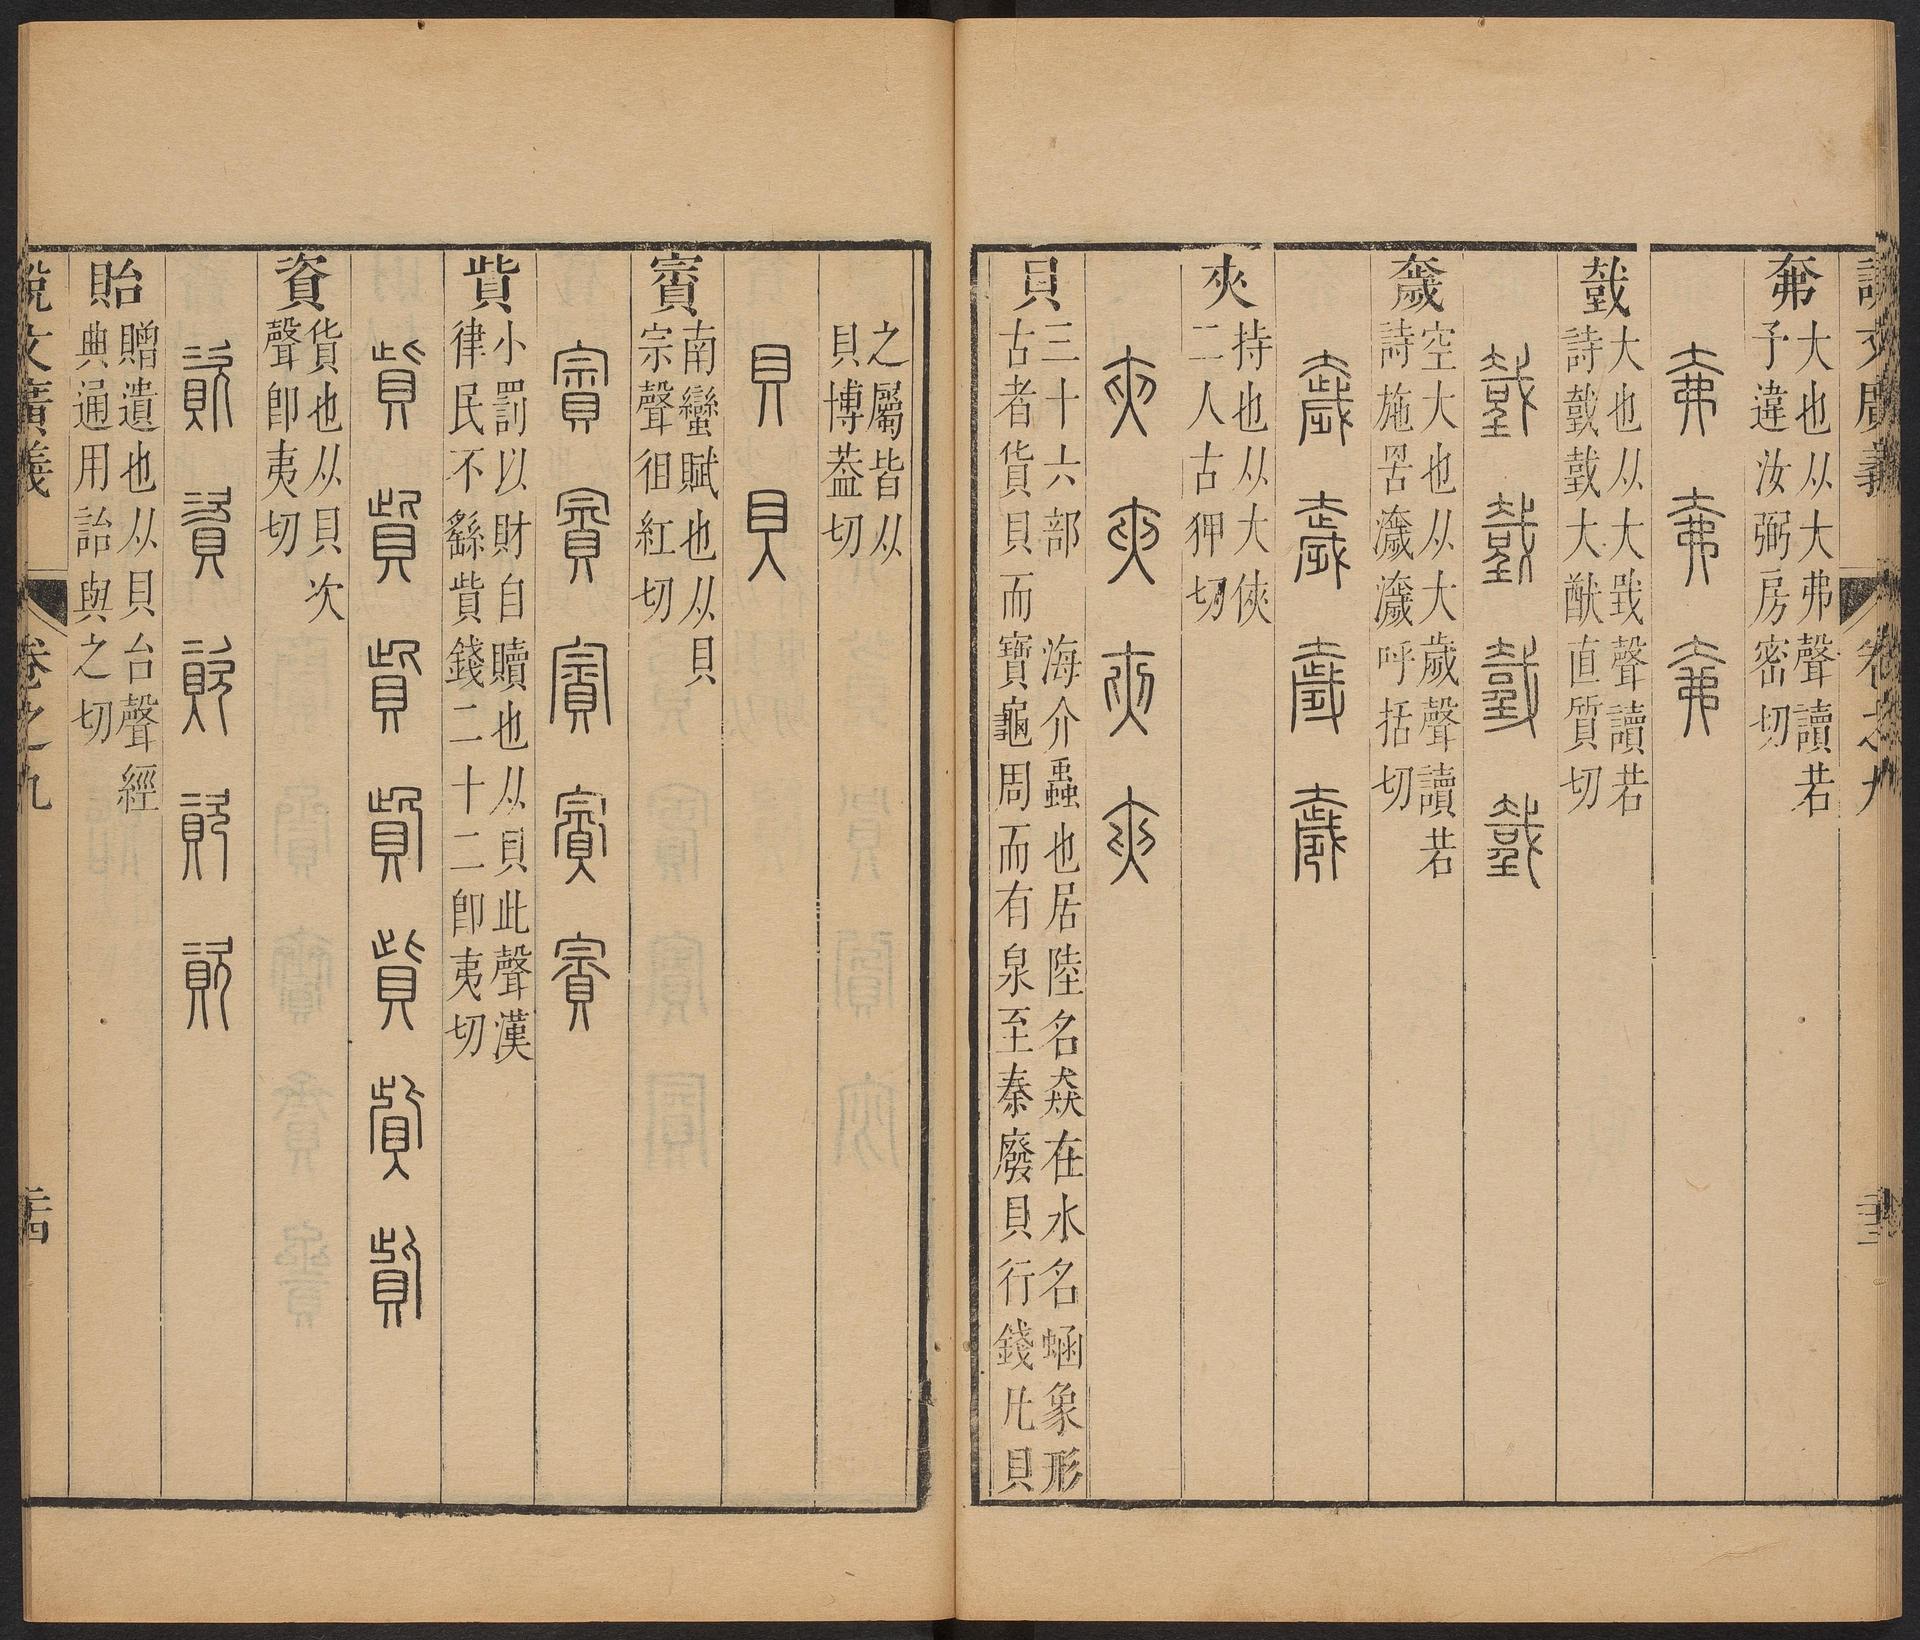 說文廣義
卷之九
奫
大也从大弗聲讀若
予違汝弼房密切
大也从大𢧜聲讀若
詩𢧤𢧤大猷直質切
空大也从大歲聲讀若
詩施罟濊濊呼括切
夾
持也从大俠
二人古狎切
貝
三十六部
海介蟲也居陸名猋在水名蜬象形
古者貨貝而寶龜周而有泉至秦廢貝行錢凡貝
之屬皆从
貝博葢切
貝 貝
賨
南蠻賦也从貝
宗聲徂紅切
賨 賨 賨 賨 賨
貲
小罰以財自贖也从貝此聲漢
律民不繇貲錢二十二卽夷切
貲 貲 貲 貲 貲 貲 貲
資
貨也从貝次
聲卽夷切
資 資 資 資 資
貽
贈遺也从貝台聲經
典通用詒與之切
說文廣義
卷之九